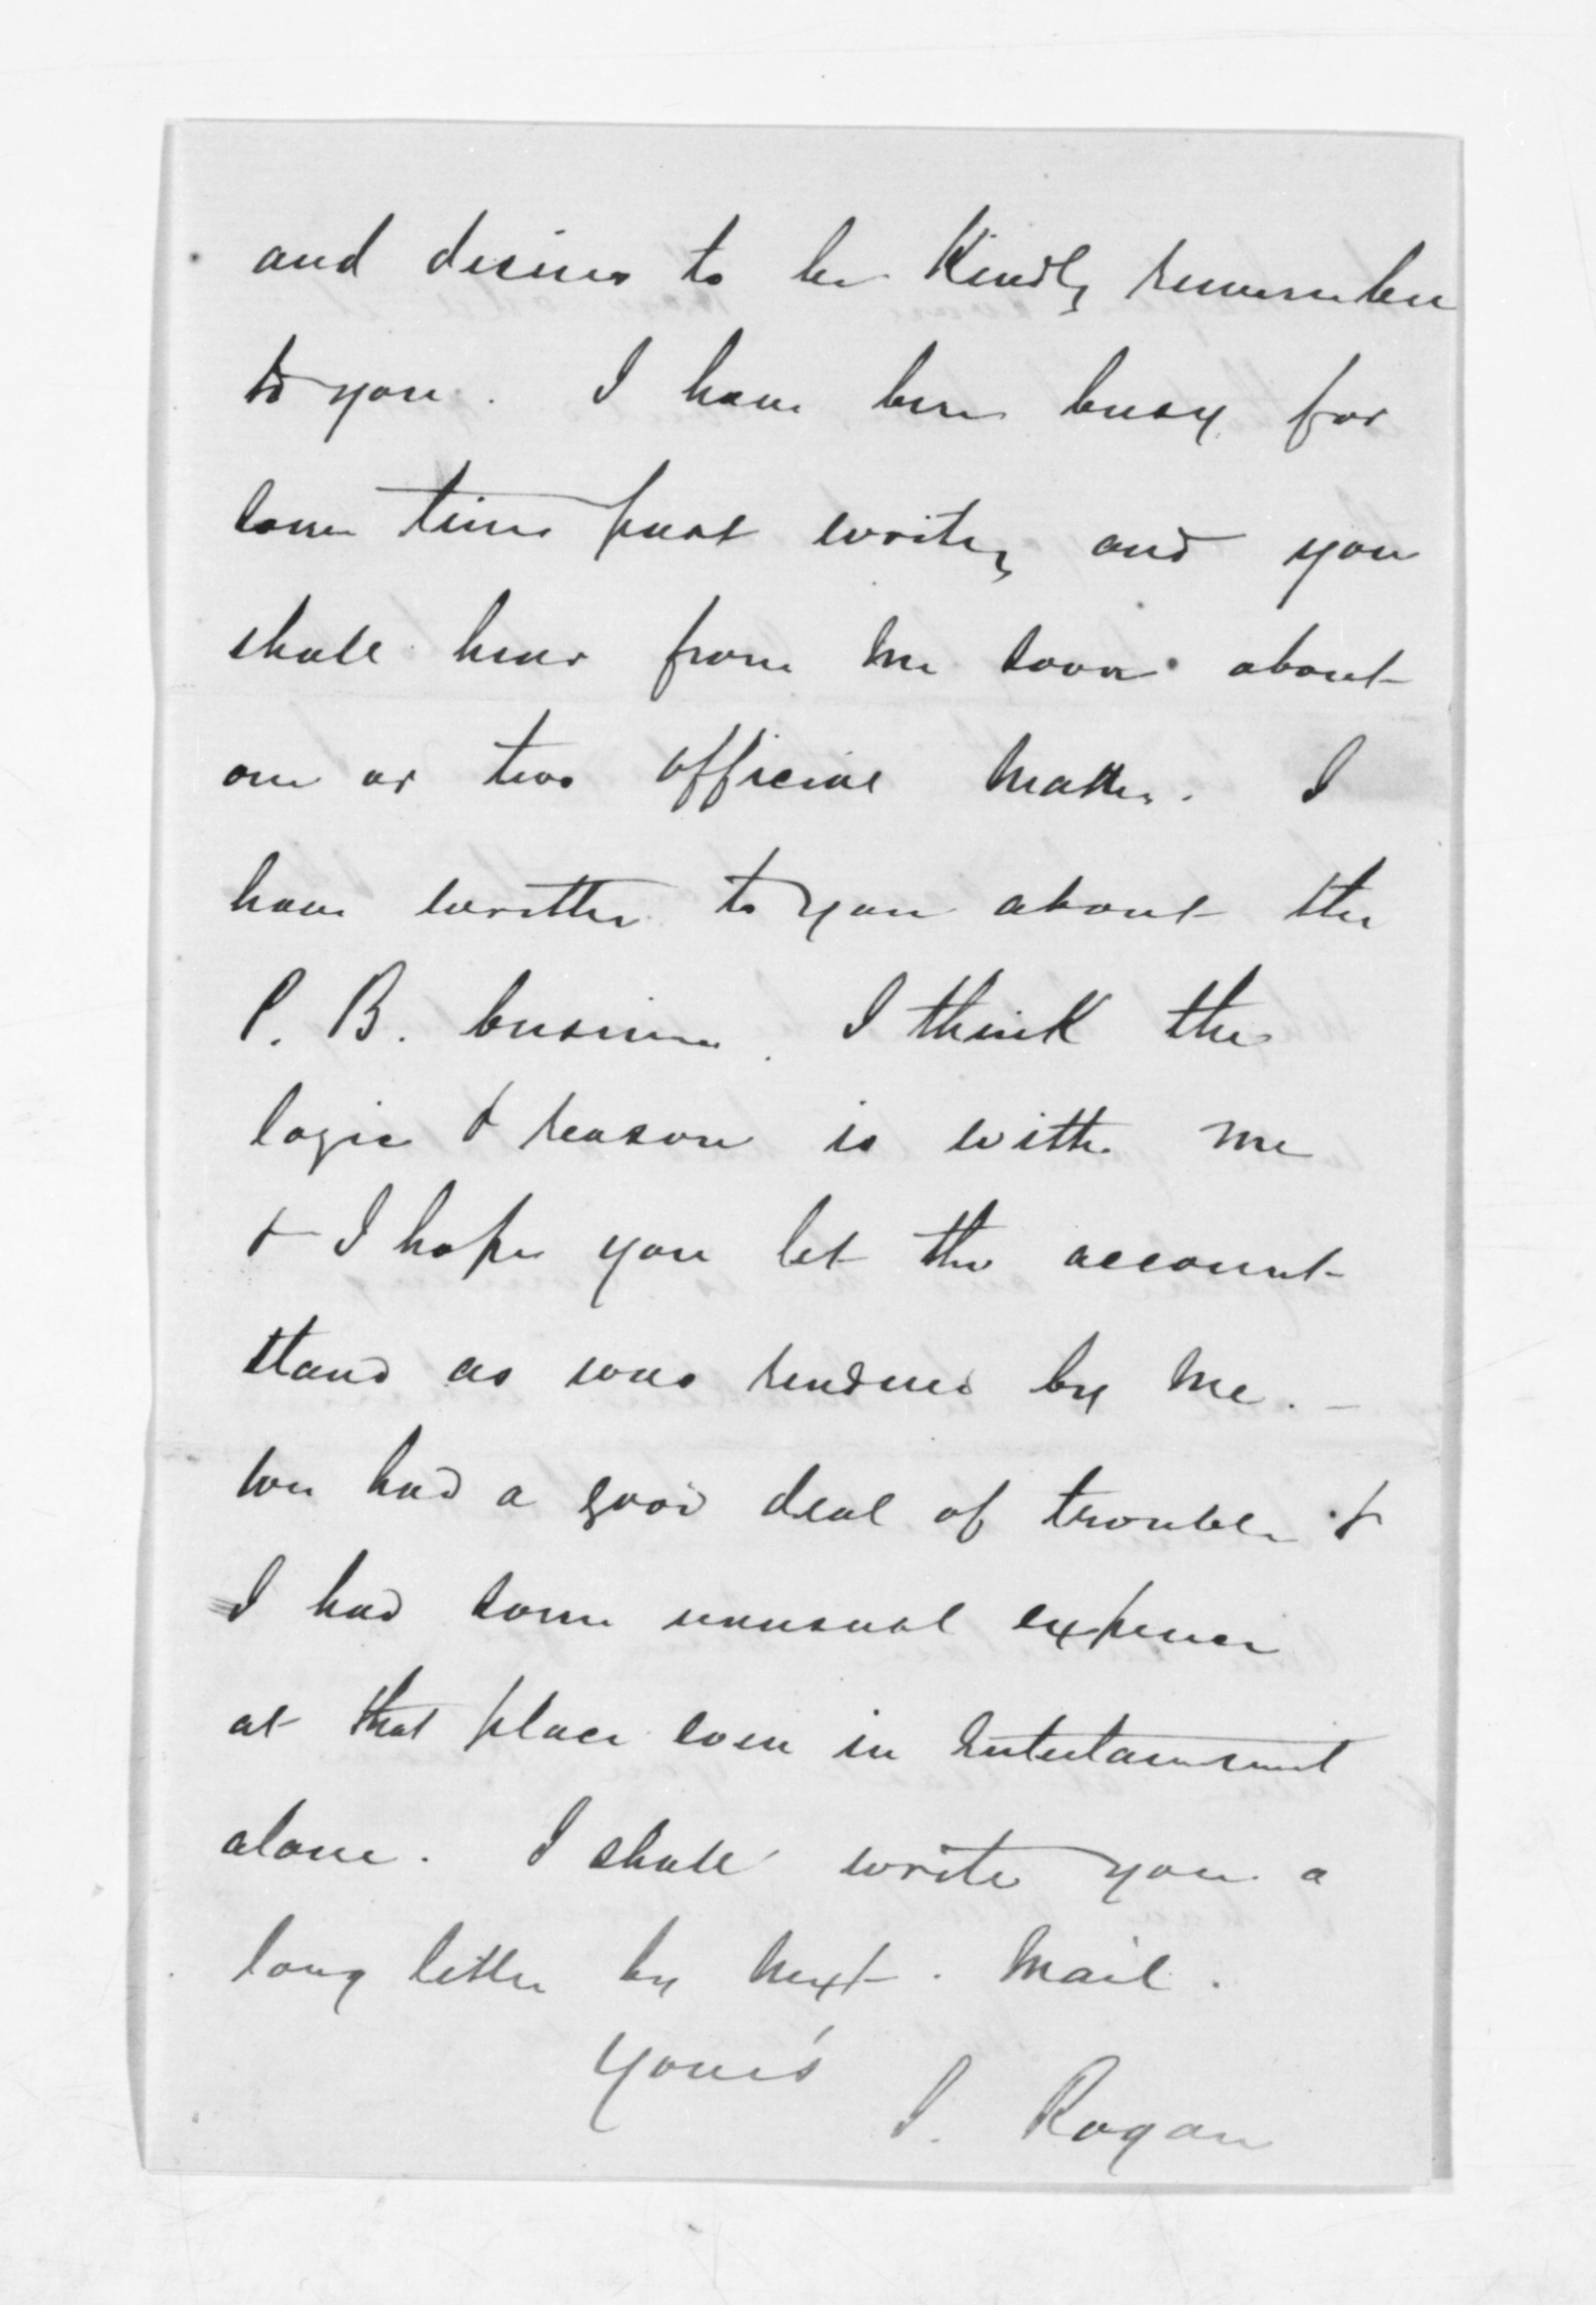 and desires to be kindly remember
to you. I have been busy for
some time past writing and you
shall hear from me soon about
one or two official matters. I
have written to you about the
P. B. business. I think the
logic & reason is with me
& I hope you let the account
stand as was rendered by me. -
We had a good deal of trouble &
I had some unusual expence
at that place even in entertainment
alone. I shall write you a
long letter by next mail.
Yours
J. Rogan